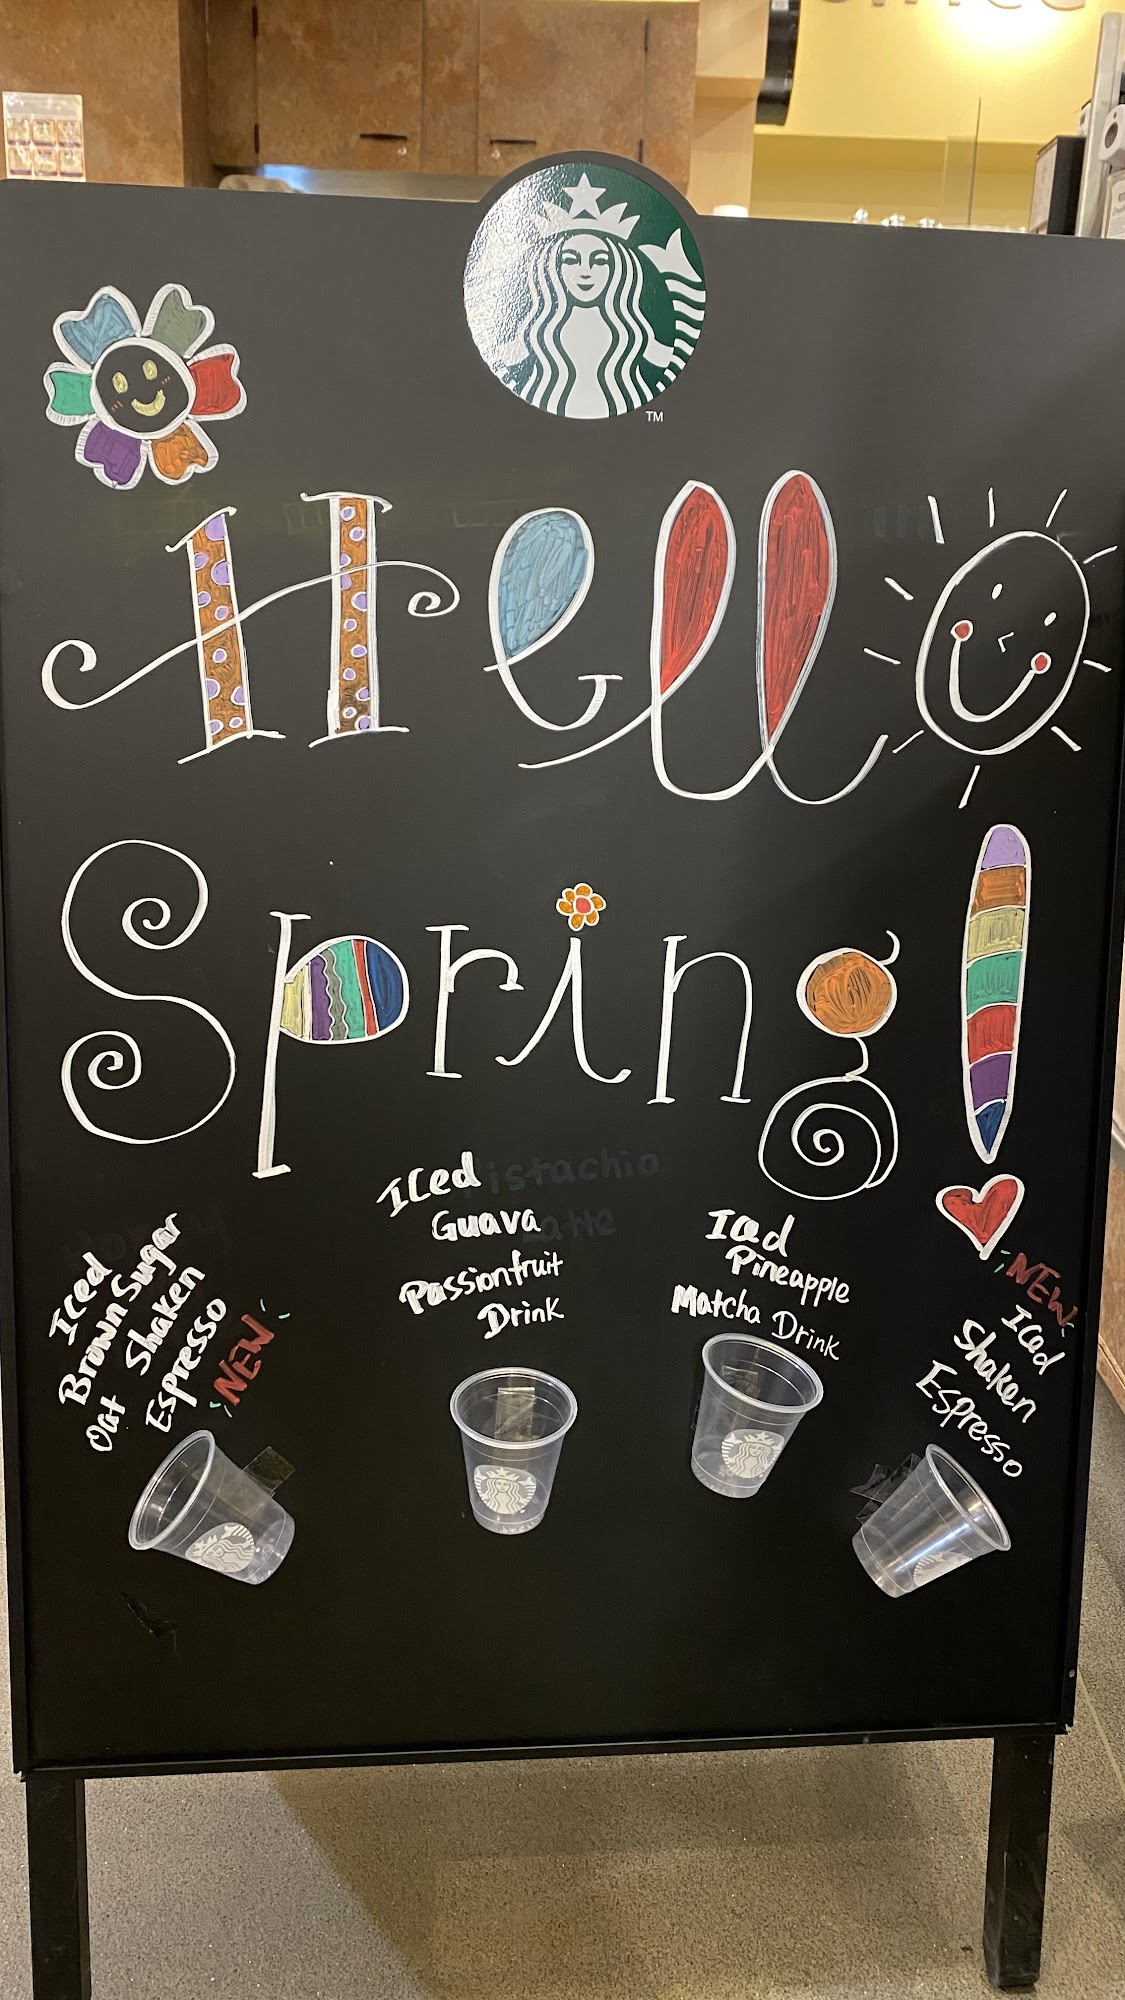 TM
Hello
Spring!
Iced
Brown Sugar
Oat Shaken
Espresso
NEW
Iced
Guava
Passionfruit
Drink
Pistachio
Latte
Iced
Pineapple
Matcha Drink
NEW
Iced
Shaken
Espresso